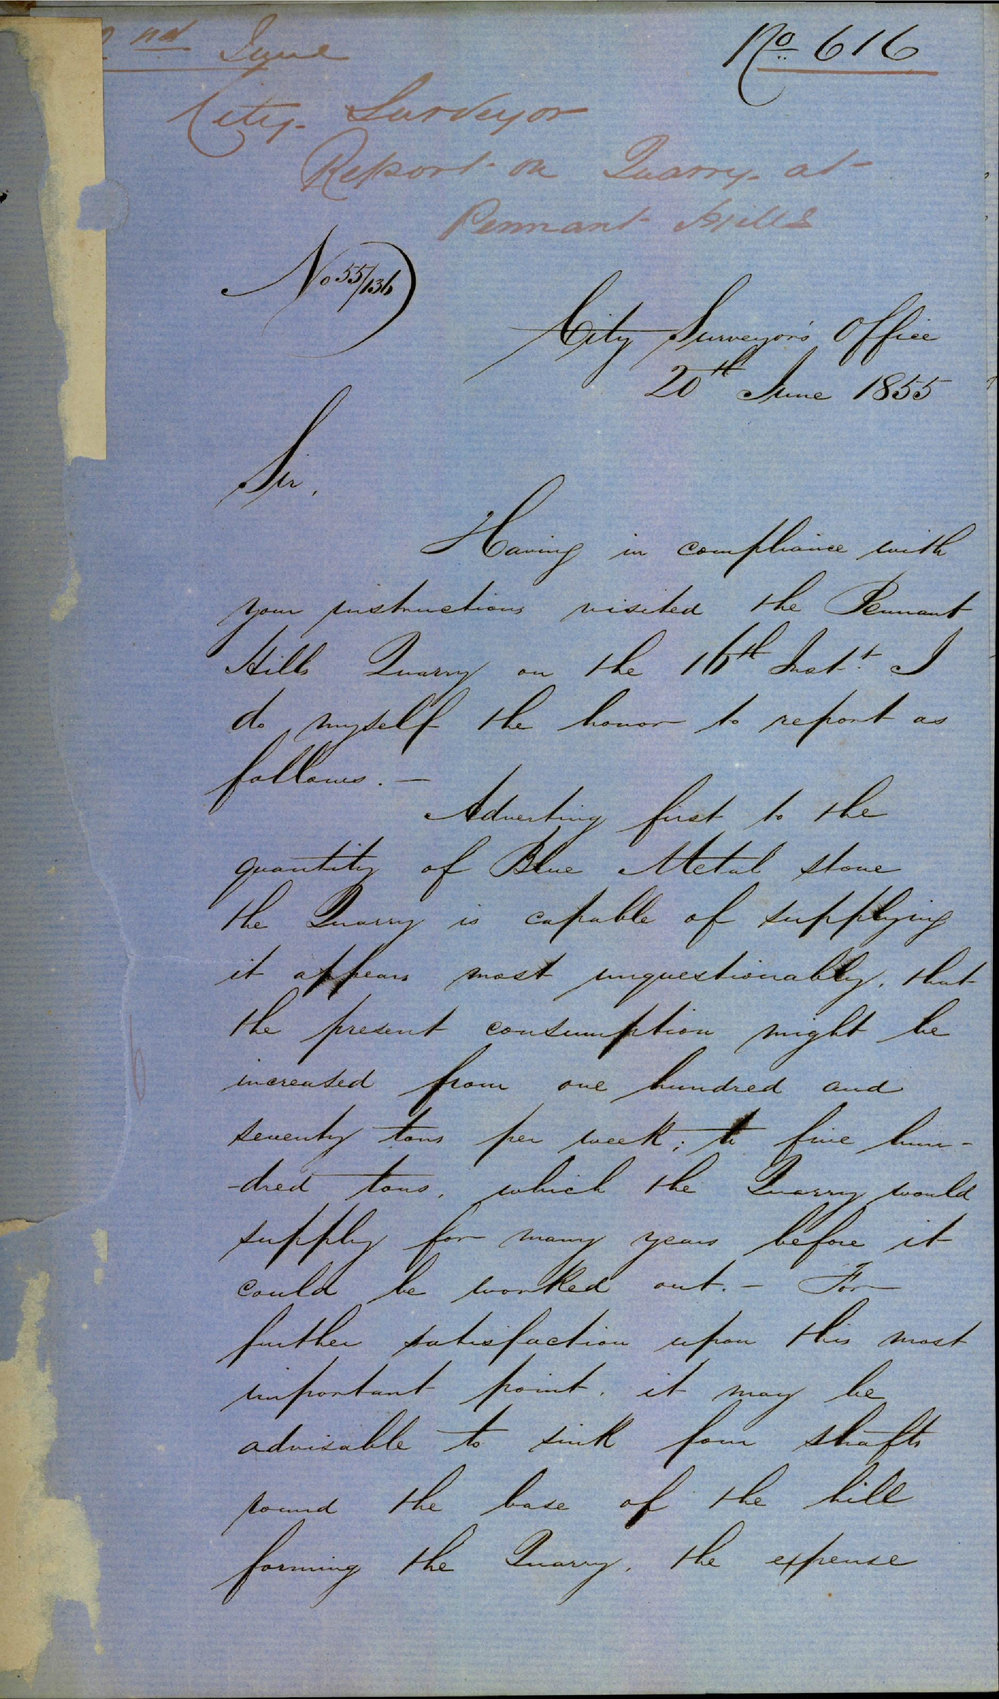 2nd June
No 616
City Surveyor
Report on Quarry at
Pennant Hills
No 55/136
City Surveyor's Office
20th June 1855
Sir,
Having in compliance with
your instructions visited the Pennant
Hills Quarry on the 16th Inst. I
do myself the honor to report as
follows. —
Adverting first to the
quantity of Blue Metal stone
the Quarry is capable of supplying
it appears most unquestionably, that
the present consumption might be
increased from one hundred and
seventy tons per week; to five hun-
-dred tons, which the Quarry would
supply for many years before it
could be worked out. — For
further satisfaction upon this most
important point, it may be
advisable to sink four shafts
round the base of the hill
forming the Quarry, the expense